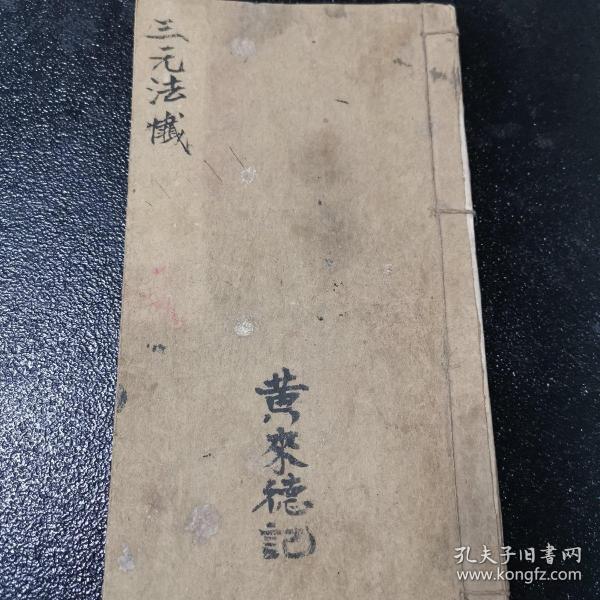 三元法懺
黄來德記
孔夫子旧書网
www.kongfz.com